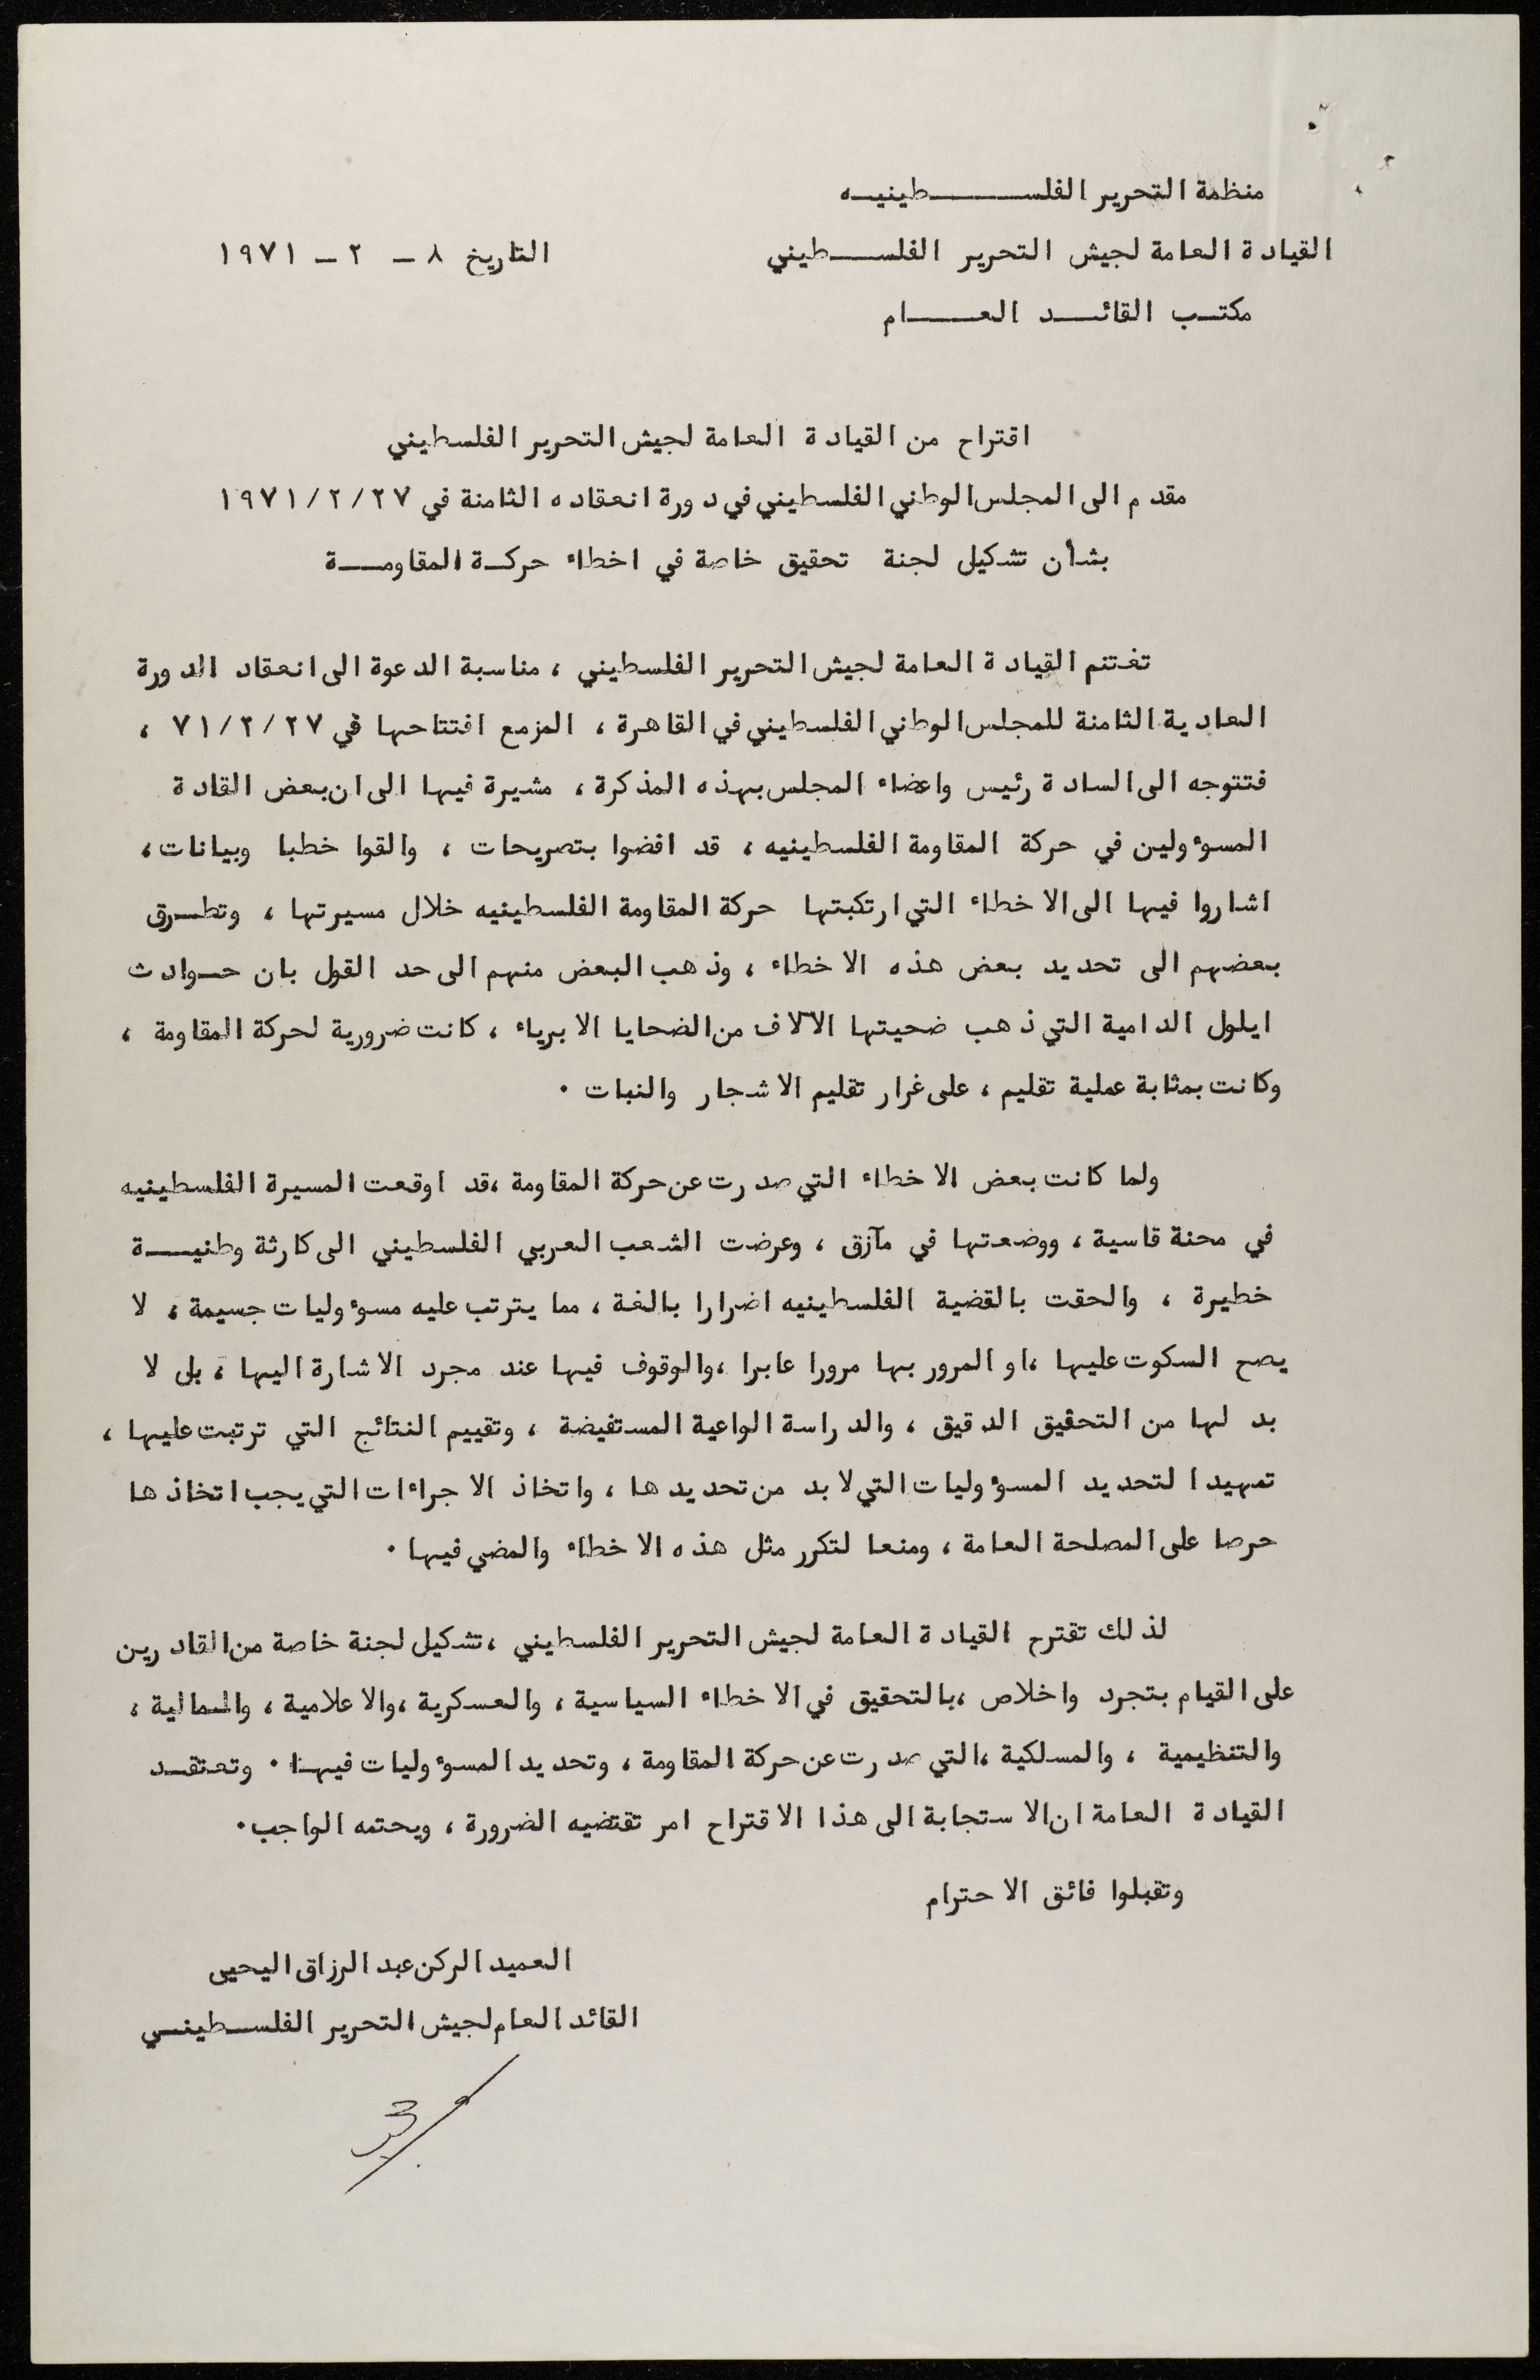 منظمة التحرير الفلسطينيه
القيادة العامة لجيش التحرير الفلسطيني
التاريخ ٨ – ٢ – ١٩٧١
مكتب القائد العام
اقتراح من القيادة العامة لجيش التحرير الفلسطيني
مقدم الى المجلس الوطني الفلسطيني في دورة انعقاده الثامنة في ١٩٧١/٢/٢٧
بشأن تشكيل لجنة تحقيق خاصة في اخطاء حركة المقاومة
تغتنم القيادة العامة لجيش التحرير الفلسطيني ، مناسبة الدعوة الى انعقاد الدورة
العادية الثامنة للمجلس الوطني الفلسطيني في القاهرة ، المزمع افتتاحها في ٧١/٢/٢٧ ،
فتتوجه الى السادة رئيس واعضاء المجلس بهذه المذكرة ، مشيرة فيها الى ان بعض القادة
المسوءولين في حركة المقاومة الفلسطينيه ، قد افضوا بتصريحات ، والقوا خطبا وبيانات ،
اشاروا فيها الى الاخطاء التي ارتكبتها حركة المقاومة الفلسطينيه خلال مسيرتها ، وتطرق
بعضهم الى تحديد بعض هذه الاخطاء ، وذهب البعض منهم الى حد القول بان حوادث
ايلول الدامية التي ذهب ضحيتها الآلاف من الضحايا الابرياء ، كانت ضرورية لحركة المقاومة ،
وكانت بمثابة عملية تقليم ، على غرار تقليم الاشجار والنبات ٠
ولما كانت بعض الاخطاء التي صدرت عن حركة المقاومة ، قد اوقعت المسيرة الفلسطينيه
في محنة قاسية ، ووضعتها في مآزق ، وعرضت الشعب العربي الفلسطيني الى كارثة وطنية
خطيرة ، والحقت بالقضية الفلسطينيه اضرارا بالغة ، مما يترتب عليه مسوءوليات جسيمة ، لا
يصح السكوت عليها ، او المرور بها مرورا عابرا ، والوقوف فيها عند مجرد الاشارة اليها ، بل لا
بد لها من التحقيق الدقيق ، والدراسة الواعية المستفيضة ، وتقييم النتائج التي ترتبت عليها ،
تمهيدا لتحديد المسوءوليات التي لابد من تحديدها ، واتخاذ الاجراءات التي يجب اتخاذها
حرصا على المصلحة العامة ، ومنعا لتكرر مثل هذه الاخطاء والمضي فيها ٠
لذلك تقترح القيادة العامة لجيش التحرير الفلسطيني ، تشكيل لجنة خاصة من القادرين
على القيام بتجرد واخلاص ، بالتحقيق في الاخطاء السياسية ، والعسكرية ، والاعلامية ، والمالية ،
والتنظيمية ، والمسلكية ، التي صدرت عن حركة المقاومة ، وتحديد المسوءوليات فيها ٠ وتعتقد
القيادة العامة ان الاستجابة الى هذا الاقتراح امر تقتضيه الضرورة ، ويحتمه الواجب ٠
وتقبلوا فائق الاحترام
العميد الركن عبد الرزاق اليحيى
القائد العام لجيش التحرير الفلسطيني